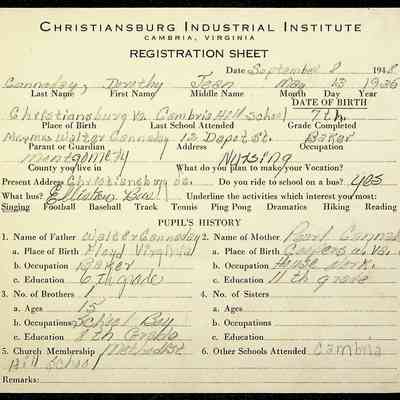 CHRISTIANSBURG INDUSTRIAL INSTITUTE
CAMBRIA, VIRGINIA
REGISTRATION SHEET
Date September 8 1948
Cannaday, Dorothy Jean May 13 1936
Last Name First Name Middle Name Month Day Year
DATE OF BIRTH
Christiansburg Va. Cambria Hill School 7th.
Place of Birth Last School Attended Grade Completed
Mr. + Mrs. Walter Cannaday 12 Depot St. Baker
Parent or Guardian Address Occupation
Montgomery Nursing
County you live in What do you plan to make your Vocation?
Present Address Christiansburg Va. Do you ride to school on a bus? yes
What bus? Elliston Underline the activities which interest you most:
Singing Football Baseball Track Tennis Ping Pong Dramatics Hiking Reading
PUPIL'S HISTORY
1. Name of Father Walter Cannaday 2. Name of Mother Pearl
a. Place of Birth Floyd Virginia a. Place of Birth Va.
b. Occupation Baker b. Occupation House Work.
c. Education 6th grade c. Education 11th grade
3. No. of Brothers 1 4. No. of Sisters
a. Ages 15 a. Ages
b. Occupations School Boy b. Occupation
c. Education 8th Grade c. Education
5. Church Membership Methodist 6. Other Schools Attended Cambria
Hill School
Remarks: